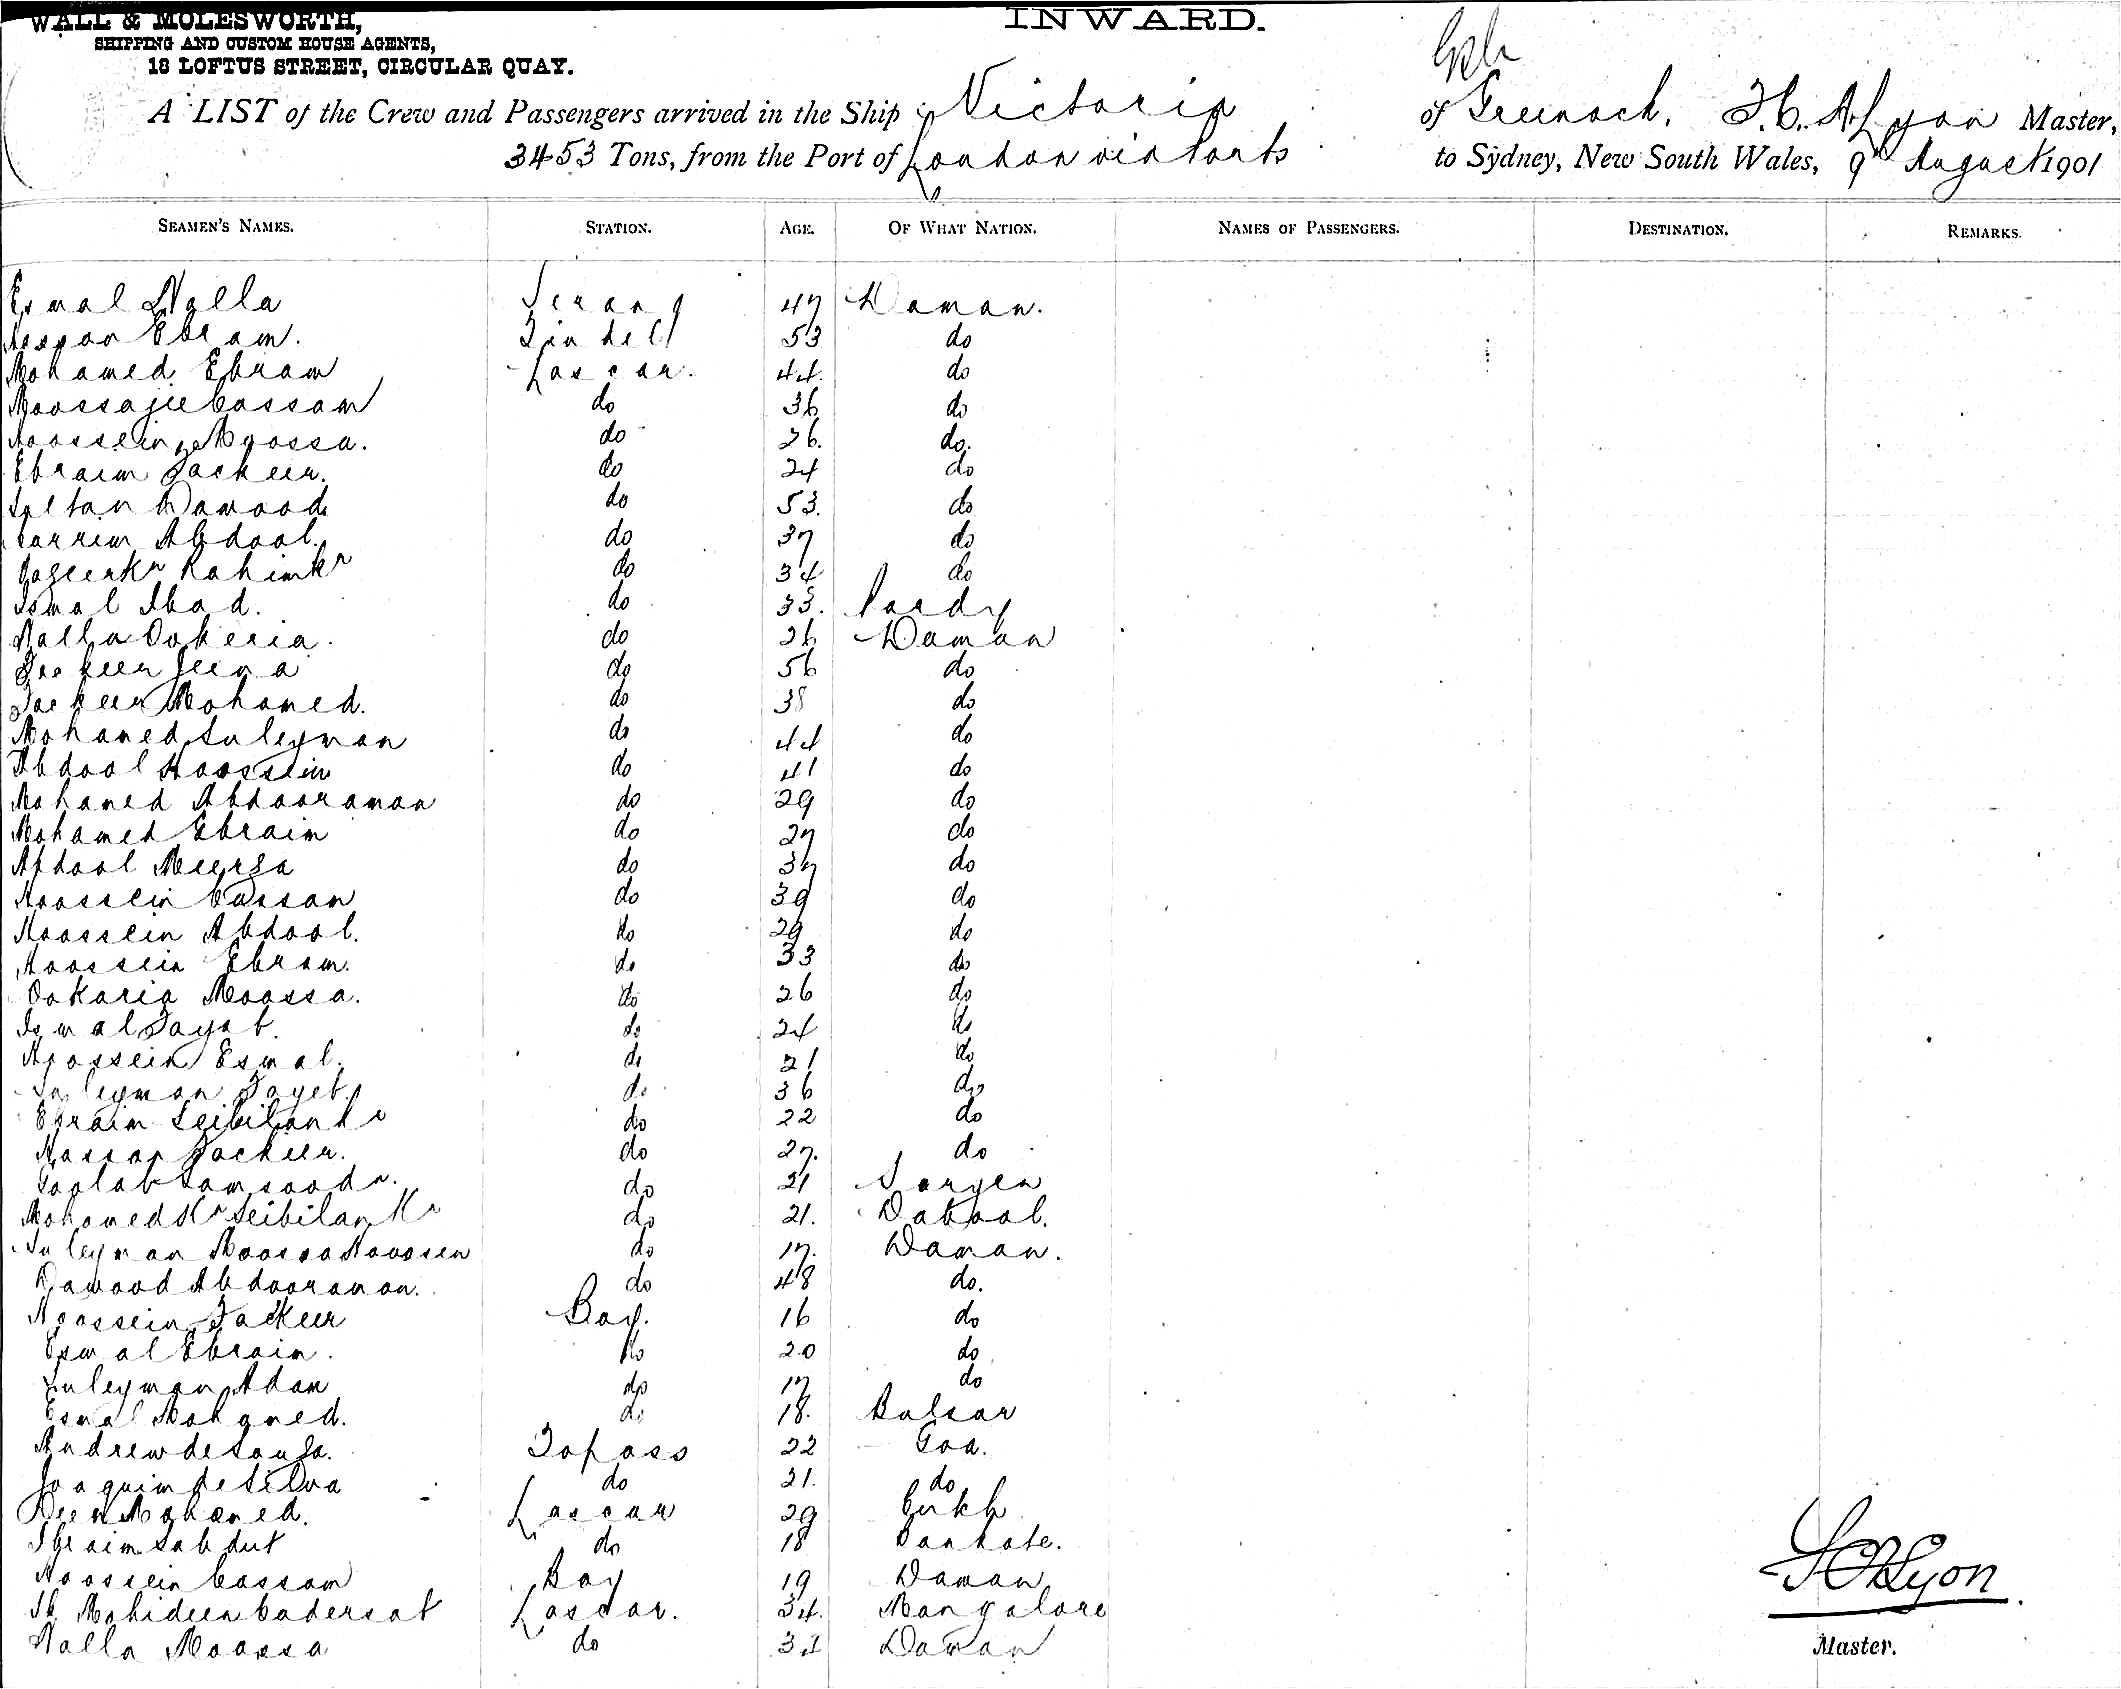 WALL & MOLESWORTH,
SHIPPING AND CUSTOM HOUSE AGENTS,
18 LOFTUS STREET, CIRCULAR QUAY.
INWARD.
A LIST of the Crew and Passengers arrived in the Ship Victoria of Greenock, Lyon Master,
3453 Tons, from the Port of London via Ports to Sydney, New South Wales, 9th August 1901
SEAMEN'S NAMES. STATION. AGE. OF WHAT NATION. NAMES OF PASSENGERS. DESTINATION. REMARKS.
Esmal Nalla Serang 47 Daman.
Ebram. Tindell 53 do
Mohamed Ebram Lascar. 44. do
Moossajee Cassam do 36 do
Hoossein Moossa. do 26. do.
Ebraim Fackeer. do 24 do
Sultan Dawood do 53. do
Carrim Abdool. do 37 do
Rahimkr do 34 do
Ismal Ibad. do 33. Pardy
Nalla Dokeria. do 26 Daman
Fackeer Jeeva do 56 do
Fackeer Mohamed. do 38 do
Mohamed Suleyman do 44 do
Abdool Hoossein do 41 do
Mohamed Abdooraman do 29 do
Mohamed Ebraim do 27 do
Abdool Meersa do 37 do
Hoossein Cassam do 39 do
Hoossein Abdool. do 29 do
Hoossein Ebram. do 33 do
Dokaria Moossa. do 26 do
Ismal Tayab. do 24 do
Hoossein Esmal. do 21 do
Suleyman Tayeb. do 36 do
Ebraim do 22 do
Hassan Fackeer. do 27. do
do 21
Mohamed Kr Seibilan Kr do 21. Dabool.
Suleyman Moossa Hoossen do 17. Daman.
Dawood Abdooraman. do 48 do.
Hoossein Fackeer Boy. 16 do
Esmal Ebraim. do 20 do
Suleyman Adam do 17 do
Esmal Mohamed. do 18. Bulsar
Andrew de Souza. Topass 22 Goa.
Joaquim de Silva do 21. do
Deen Mohamed. Lascar 29
Ibraim do 18 Bankote.
Hoossein Cassam Boy 19 Daman
Sk. Mohideen Cadersat Lascar. 34. Mangalore
Nalla Moossa do 31 Daman
Lyon
Master.